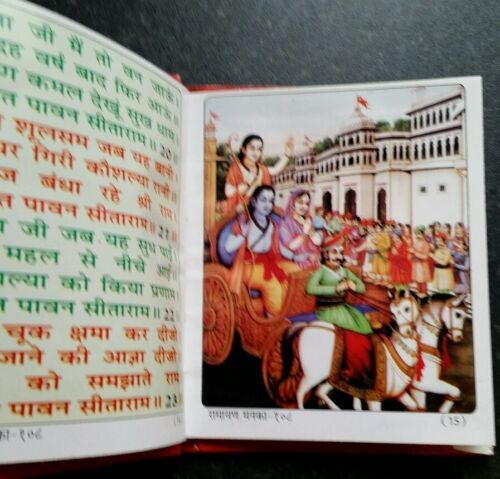 जी मैं तो बन जाऊँ
वर्ष बाद फिर आऊँ
कमल देखूं सुख धाम
पावन सीताराम॥ 20॥
शूलसम जब यह बानी
गिरी कौशल्या रानी
बंधा रहे श्री राम
पावन सीताराम॥ 21॥
जी जब यह सुध पाई
महल से नीचे आई
को किया प्रणाम
पावन सीताराम॥ 22॥
चूक क्षमा कर दीजो
जाने की आज्ञा दीजो
को समझाते राम
पावन सीताराम॥ 23॥
रामायण मनका-१०८
(15)